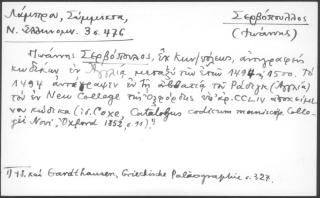 Λάμπρου, Σύμμεικτα,
Ν. Ἑλληνομν. 3 σ. 476
Σερβόπουλλος
(Ἰωάννης)
Ἰωάννης Σερβόπουλος, ἐκ Κων/πόλεως, ἀντιγραφεὺς
κωδίκων ἐν Ἀγγλίᾳ μεταξὺ τῶν ἐτῶν 1484 - 1500. Τὸ
1494 ἀντέγραψεν ἐν τῇ ἀββατίᾳ τοῦ (Ἀγγλία)
τὸν ἐν New College τῆς Ὀξφόρδης ὑπ' ἀρ. CCLIV ἀποκείμε-
νον κώδικα (ἰδ. Coxe, Catalogus codicum manuscr. Colle-
gii Novi, Oxford 1852, σ. 91).¹⁾
1) ἰδ. καὶ Gardthausen, Griechische Palaeographie σ. 327.